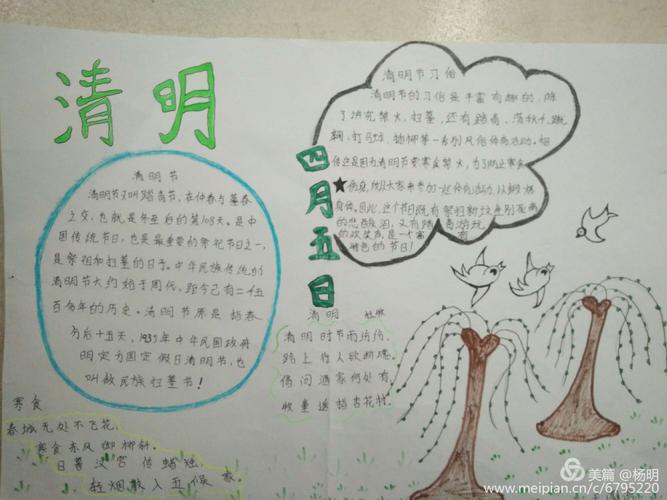 清明
清明节
清明节又叫踏青节，在仲春与暮春
之交，也就是冬至后的第108天。是中
国传统节日，也是最重要的祭祀节日之一，
是祭祖和扫墓的日子。中华民族传统的
清明节大约始于周代，距今已有二千五
百多年的历史。清明节原是指春
分后十五天，1935年中华民国政府
明定为国定假日清明节，也
叫做民族扫墓节！
四月五日
清明节习俗
清明节的习俗是丰富有趣的，除
了讲究禁火、扫墓，还有踏青、荡秋千、蹴
鞠、打马球、插柳等一系列风俗体育活动。相
传这是因为清明节要寒食禁火，为了防止寒食
伤身，所以大家来参加一些体育活动，以锻炼
身体。因此，这个节日既有祭扫新坟生别死离
的悲酸泪，又有踏青游玩
的欢笑声，是一个富有
特色的节日！
清明 杜牧
清明时节雨纷纷，
路上行人欲断魂。
借问酒家何处有，
牧童遥指杏花村。
寒食
春城无处不飞花，
寒食东风御柳斜。
日暮汉宫传蜡烛，
轻烟散入五侯家。
美篇 @杨明
www.meipian.cn/c/6795220